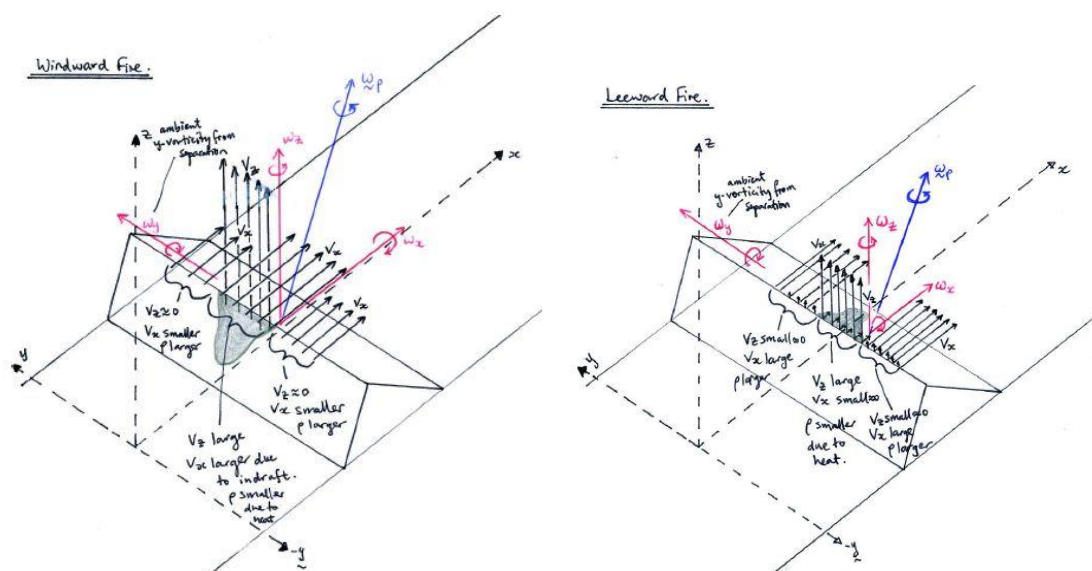 Windward Fire.
z
ambient
y-vorticity from
separation
ωy
Vz
ωz
ωp
x
Vx
Vx
ωx
Vx
Vz≈0
Vx smaller
ρ larger
Vz≈0
Vx smaller
ρ larger
Vz large
Vx larger due
to indraft.
ρ smaller
due to
heat
y
-y
Leeward Fire.
z
ambient
y-vorticity from
separation
ωy
ωz
ωp
x
Vx
Vz
ωx
Vx
Vz small≈0
Vx large
ρ larger
Vz large
Vx small≈0
ρ smaller
due to
heat.
Vz small≈0
Vx large
ρ larger
y
-y